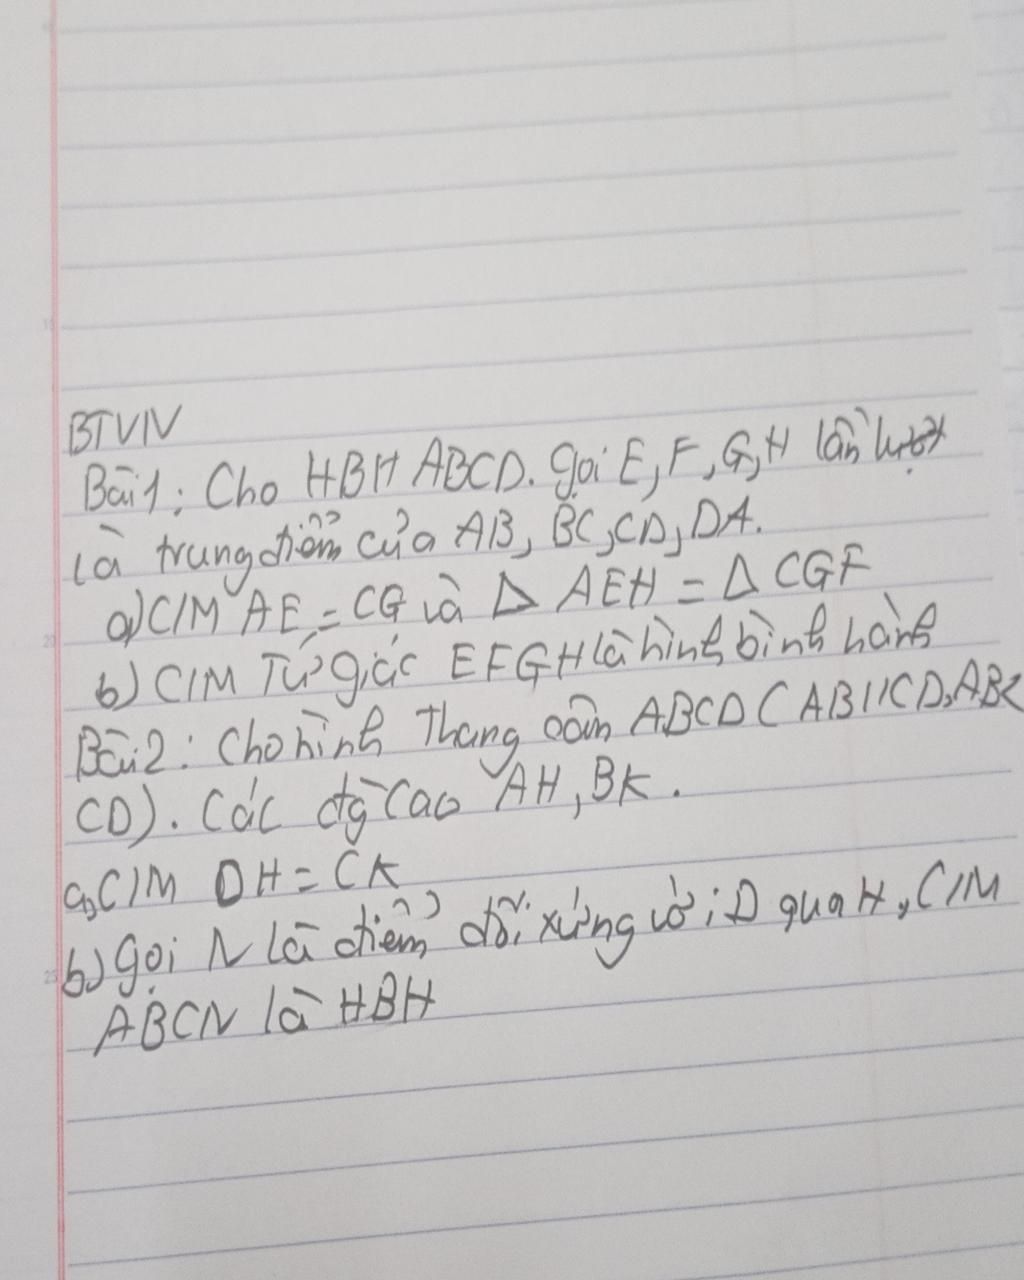 BTVN
Bài1: Cho HBH ABCD. gọi E, F, G, H lần lượt
là trung điểm của AB, BC, CD, DA.
a) C/M AE = CG và Δ AEH = Δ CGF
b) C/M Tứ giác EFGH là hình bình hành
Bài2: Cho hình Thang cân ABCD ( AB//CD, AB<
CD). Các đg cao AH, BK.
a, C/M DH = CK
b) gọi N là điểm đối xứng với D qua H, C/M
ABCN là HBH